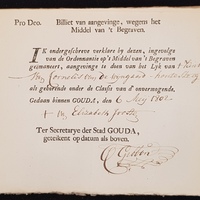 Pro Deo. Billiet van aangevinge, wegens het
Middel van 't Begraven.
IK ondergeschreve verklare by dezen, ingevolge
van de Ordonnantie op 't Middel van 't Begraven
geëmaneert, aangevinge te doen van het Lyk van 't
Cornelis van de
als gehorende onder de Classis van d' onvermogende.
Gedaan binnen GOUDA, den 6 Mey 180
Elizabeth
Ter Secretarye der Stad GOUDA,
geteikent op datum als boven.